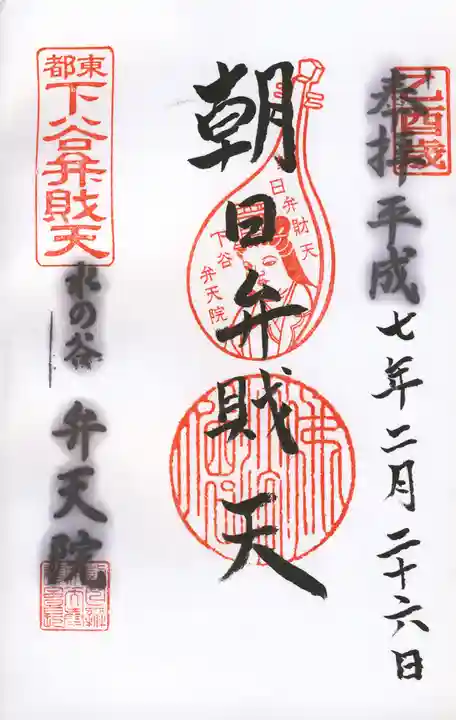 奉拝 平成七年二月二十六日
朝日弁財天
日弁財天
下谷
弁天院
東都
下谷弁財天
水の谷 弁天院